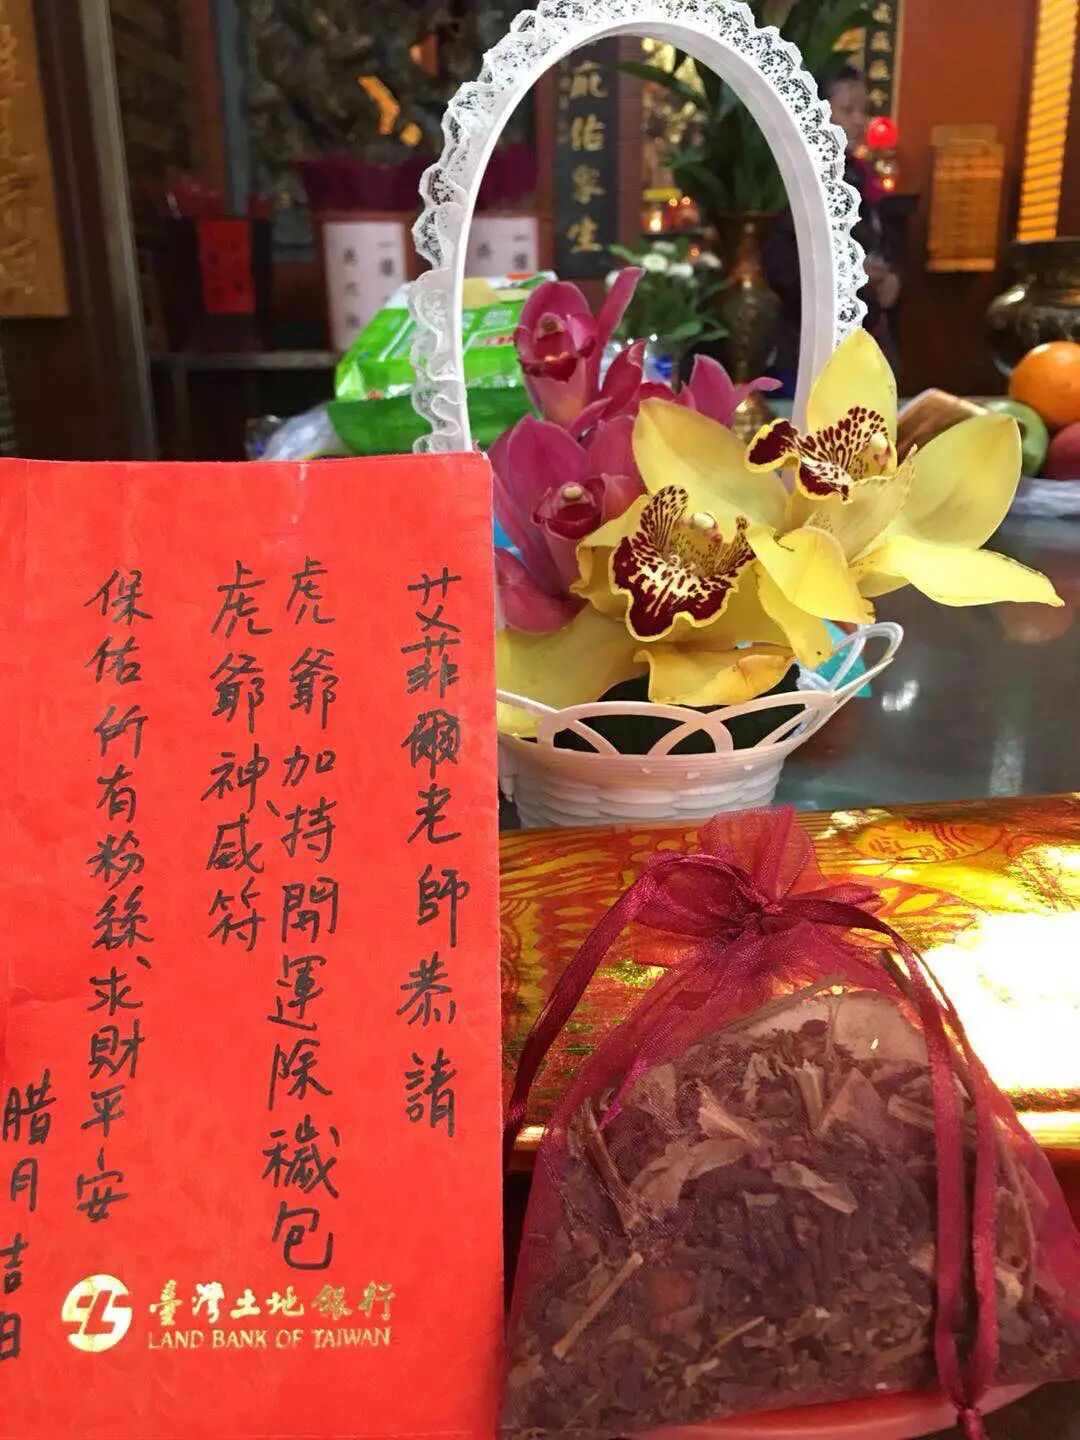 艾菲爾老師恭請
虎爺加持開運除穢包
虎爺神威符
保佑所有粉絲求財平安
腊月吉日
臺灣土地銀行
LAND BANK OF TAIWAN